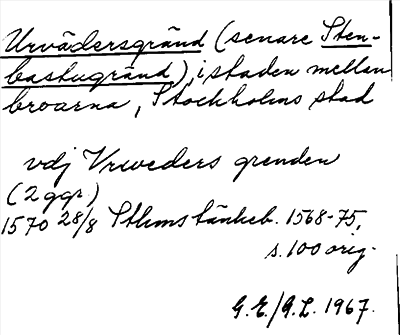 Urvädersgränd (senare Sten-
bastugränd), i staden mellan
broarna, Stockholms stad
vdj Vrweders grenden
(2 ggr)
1570 28/8 Sthms tänkeb. 1568-75,
s. 100 orig.
G.E./G.L. 1967.